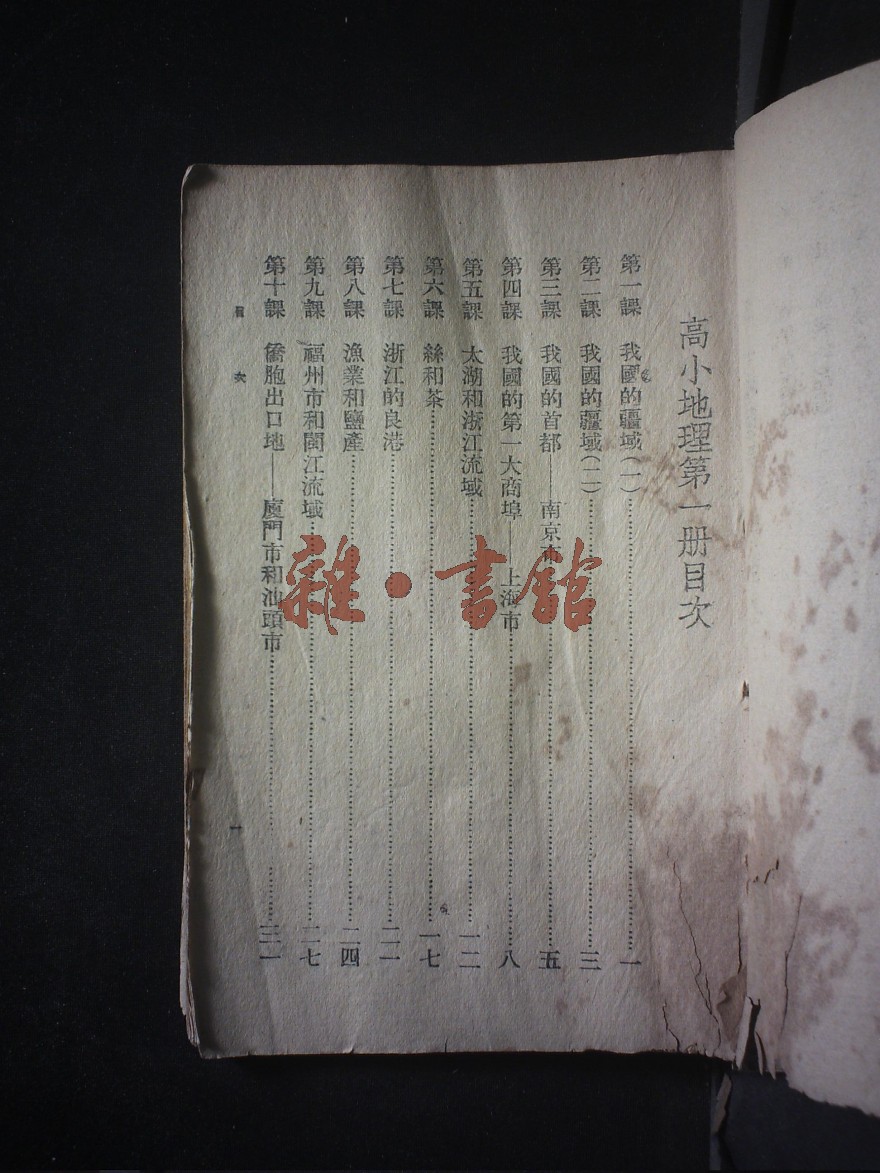 高小地理第一册目次
第一課 我國的疆域(一)……一
第二課 我國的疆域(二)……三
第三課 我國的首都——南京市……五
第四課 我國的第一大商埠——上海市……八
第五課 太湖和浙江流域……一二
第六課 絲和茶……一七
第七課 浙江的良港……二一
第八課 漁業和鹽產……二四
第九課 福州市和閩江流域……二七
第十課 僑胞出口地——廈門市和汕頭市……三一
目次
一
雜·書館